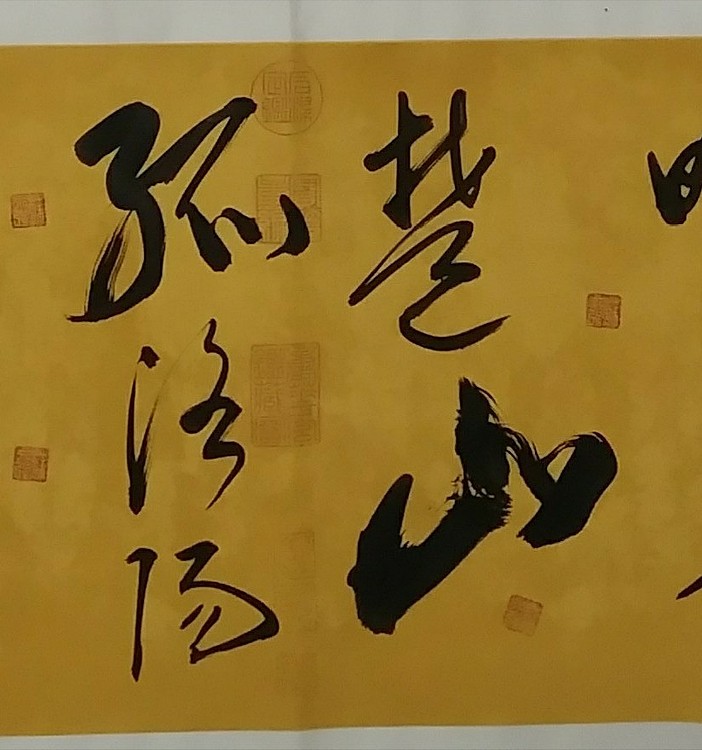 楚山
孤洛陽